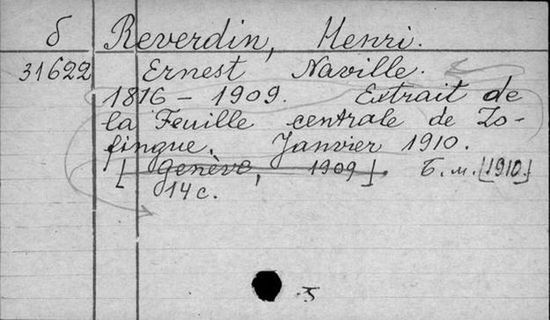 б Reverdin, Henri.
31622 Ernest Naville.
1816 – 1909. Extrait de
la Feuille centrale de Zo-
fingue. Janvier 1910.
[Genève, 1909]. Б. м. [1910.]
14 с.